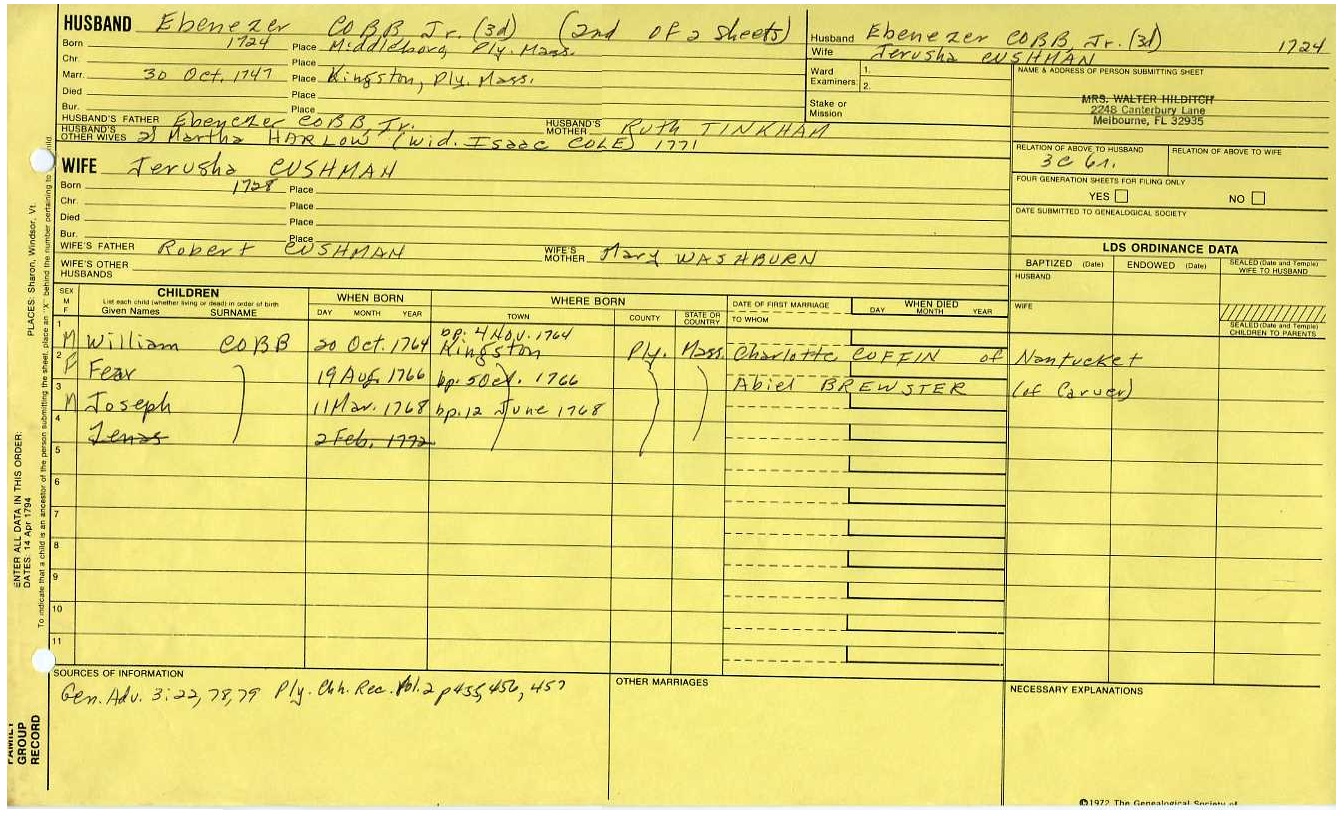 HUSBAND Ebenezer COBB Jr. (3d) (2nd of 2 sheets)
Born 1724 Place Middleboro, Ply. Mass.
Chr. Place
Marr. 30 Oct. 1747 Place Kingston, Ply. Mass.
Died Place
Bur. Place
HUSBAND'S FATHER Ebenezer COBB, Jr. HUSBAND'S MOTHER Ruth TINKHAM
HUSBAND'S OTHER WIVES 2) Martha HARLOW (wid. Isaac COLE) 1771
Husband Ebenezer COBB, Jr. (3d) 1724
Wife Jerusha CUSHMAN
Ward 1.
Examiners: 2.
Stake or
Mission
NAME & ADDRESS OF PERSON SUBMITTING SHEET
MRS. WALTER HILDITCH
2248 Canterbury Lane
Melbourne, FL 32935
RELATION OF ABOVE TO HUSBAND RELATION OF ABOVE TO WIFE
3C 6r.
FOUR GENERATION SHEETS FOR FILING ONLY
YES NO
DATE SUBMITTED TO GENEALOGICAL SOCIETY
WIFE Jerusha CUSHMAN
Born 1728 Place
Chr. Place
Died Place
Bur. Place
WIFE'S FATHER Robert CUSHMAN WIFE'S MOTHER Mary WASHBURN
WIFE'S OTHER
HUSBANDS
LDS ORDINANCE DATA
BAPTIZED (Date) ENDOWED (Date) SEALED (Date and Temple) WIFE TO HUSBAND
HUSBAND
WIFE
SEALED (Date and Temple) CHILDREN TO PARENTS
SEX M F
CHILDREN
List each child (whether living or dead) in order of birth
Given Names SURNAME
WHEN BORN
DAY MONTH YEAR
WHERE BORN
TOWN COUNTY STATE OR COUNTRY
DATE OF FIRST MARRIAGE
TO WHOM
WHEN DIED
DAY MONTH YEAR
1 bp. 4 Nov. 1764
M William COBB 20 Oct. 1764 Kingston Ply. Mass. Charlotte COFFIN of Nantucket
2
F Fear 19 Aug. 1766 bp. 5 Oct. 1766 Abiel BREWSTER (of Carver)
3
M Joseph 11 Mar. 1768 bp. 12 June 1768
4
Zenas 2 Feb. 1772
5
6
7
8
9
10
11
SOURCES OF INFORMATION
Gen. Adv. 3:22, 78, 79 Ply. Chh. Rec. Vol. 2 p 455, 456, 457
OTHER MARRIAGES
NECESSARY EXPLANATIONS
©1972 The Genealogical Society of
PLACES: Sharon, Windsor, Vt.
ENTER ALL DATA IN THIS ORDER:
DATES: 14 Apr 1794
To indicate that a child is an ancestor of the person submitting the sheet, place an "X" behind the number pertaining to child.
FAMILY
GROUP
RECORD